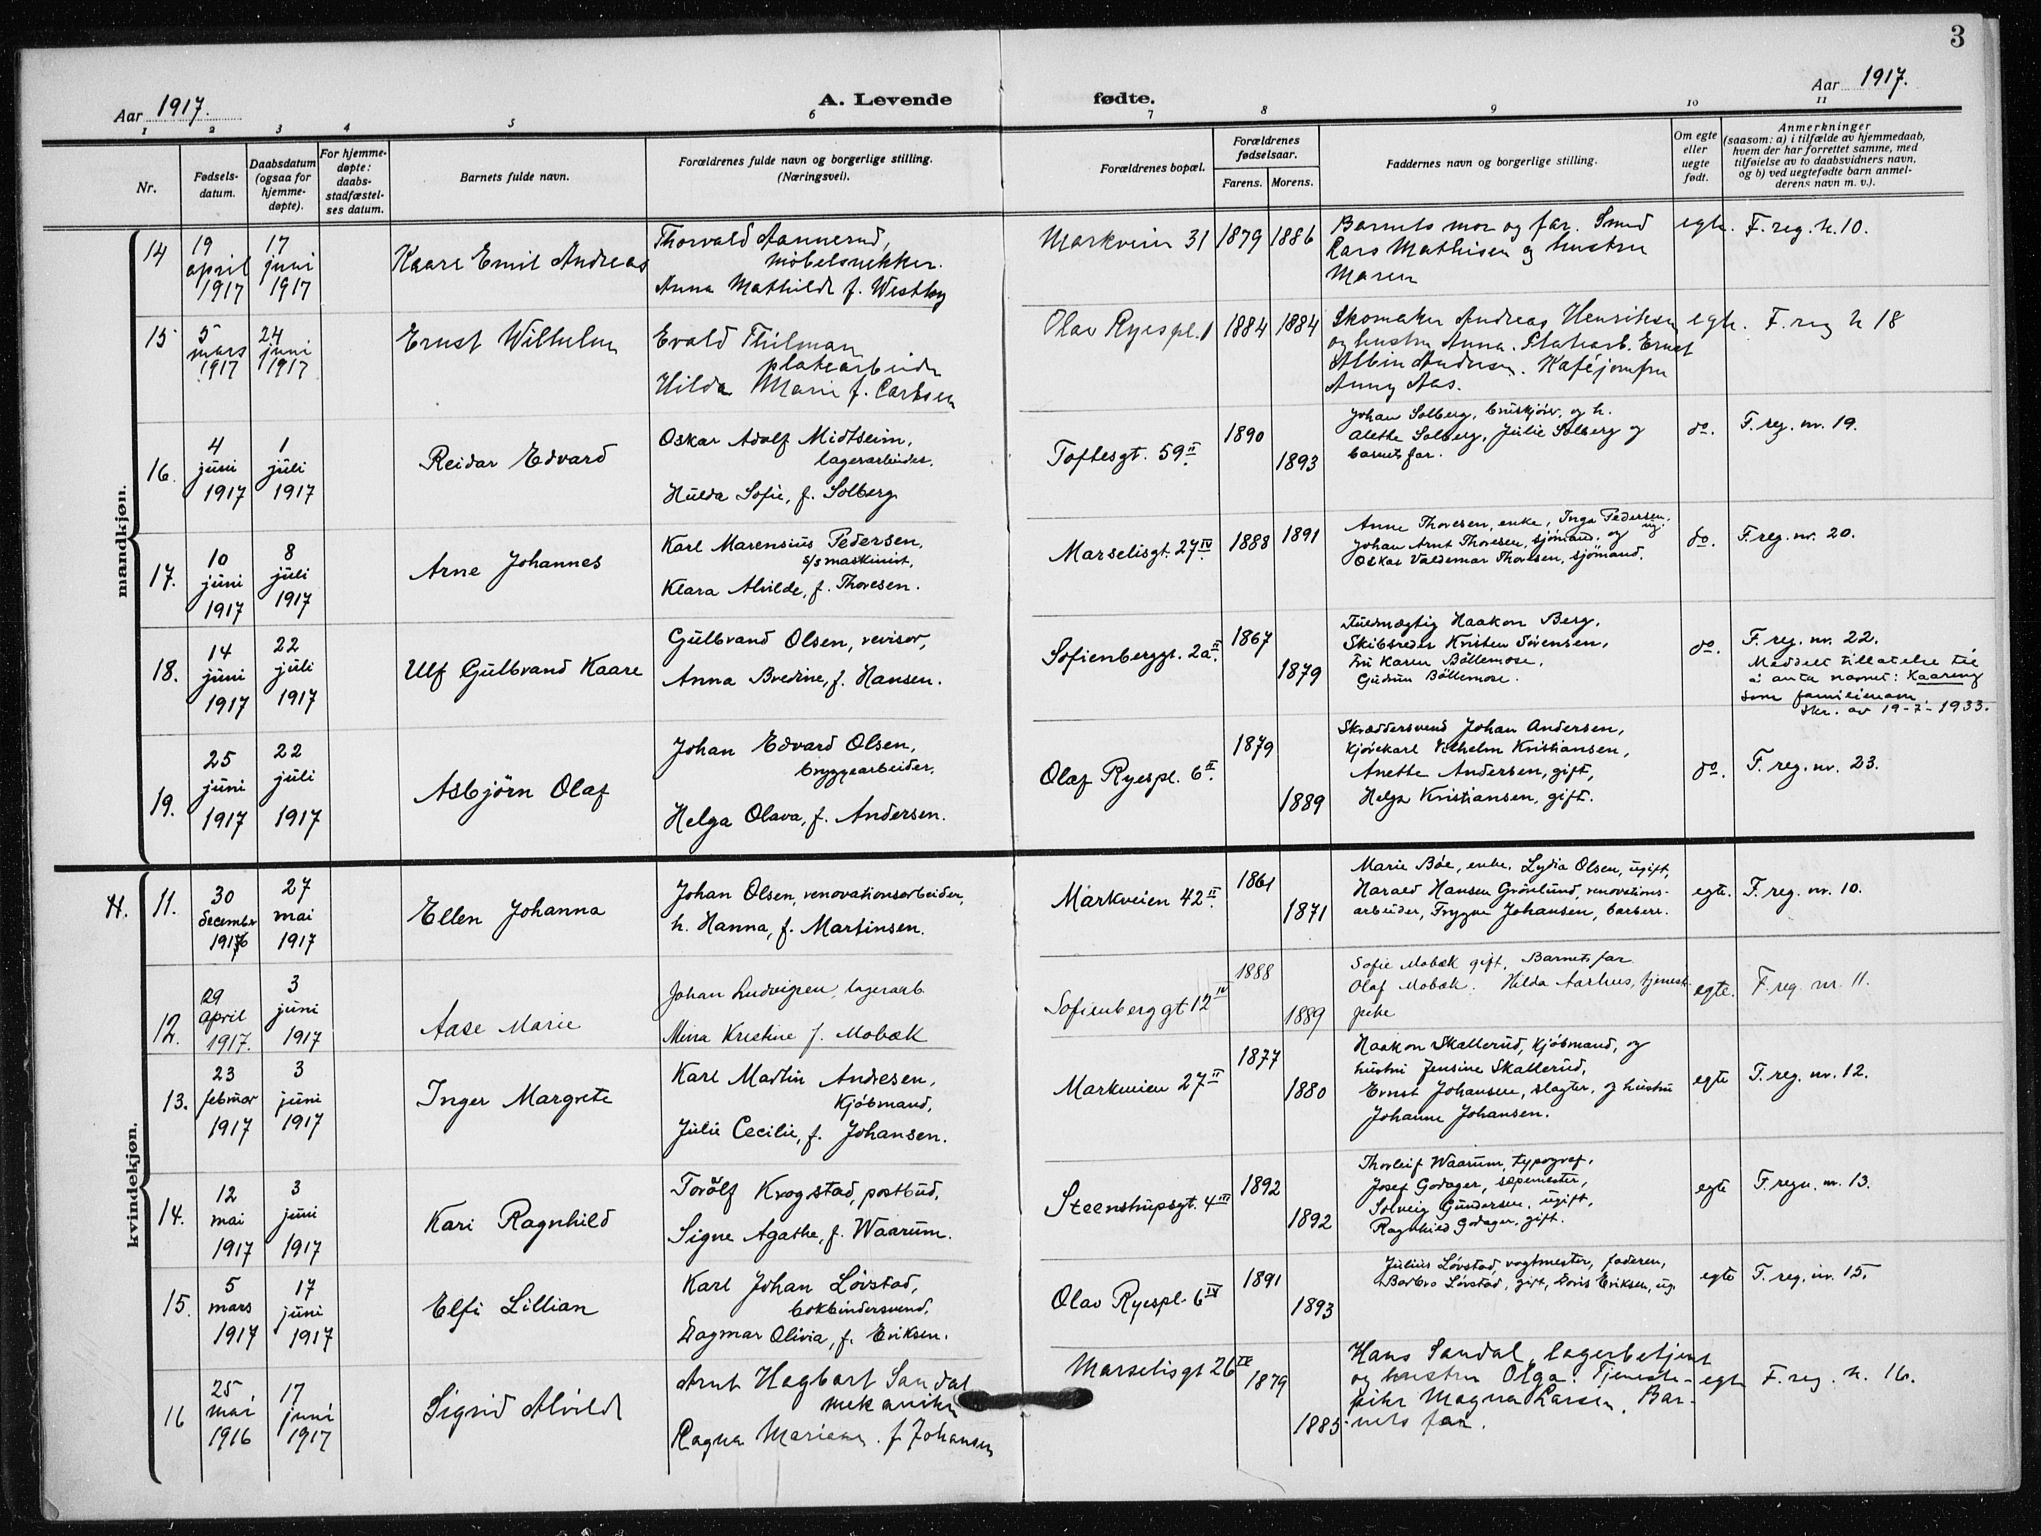 3
Aar 1917.
A. Levende fødte.
Aar 1917.
1 2 3 4 5 6 7 8 9 10 11
Nr.
Fødsels-
datum.
Daabsdatum
(ogsaa for
hjemme-
døpte).
For hjemme-
døpte:
daabs-
stadfæstel-
ses datum.
Barnets fulde navn.
Forældrenes fulde navn og borgerlige stilling.
(Næringsvei).
Forældrenes bopæl.
Forældrenes
fødselsaar.
Farens. Morens.
Faddernes navn og borgerlige stilling.
Om egte
eller
uegte
født.
Anmerkninger
(saasom: a) i tilfælde av hjemmedaab,
hvem der har forrettet samme, med
tilføielse av to daabsvidners navn,
og b) ved uegtefødte barn anmel-
derens navn m. v.).
mandkjøn.
14
19
april
1917
17
juni
1917
Kaare Emil Andreas
Thorvald Aannerud,
møbelsnekker.
Anna Mathilde f. Westby
Markveien 31
1879
1886
Barnets mor og far. Smed
Lars Mathisen og hustru
Maren
egte.
F. reg. n. 10.
15
5
mars
1917
24
juni
1917
Ernst Wilhelm
Evald Thilman
platearbeider
Hilda Marie f. Carlsen
Olav Ryespl. 1
1884
1884
Skomaker Andreas Henriksen
og hustru Anna. Platearb. Ernst
Albin Andersen. Kaféjomfru
Anny Aas.
egte.
F. reg n 18
16.
4
juni
1917
1
juli
1917
Reidar Edvard
Oskar Adolf Midtseim,
lagerarbeider.
Hulda Sofie, f. Solberg
Toftesgt. 59 II.
1890
1893
Johan Solberg, bruskjörer, og h.
Alethe Solberg, Julie Solberg og
barnets far.
do.
F. reg. nr. 19.
17.
10
juni
1917
8
juli
1917
Arne Johannes
Karl Marensius Pedersen,
s/s maskinist,
Klara Alvilde, f. Thoresen.
Marselisgt. 27 IV.
1888
1891
Anne Thoresen, enke, Inga Pedersen, ug.
Johan Arnt Thoresen, sjömand, og
Oskar Valdemar Thoresen, sjömand.
do.
F. reg. nr. 20.
18.
14
juni
1917
22
juli
1917
Ulf Gulbrand Kaare
Gulbrand Olsen, revisor,
Anna Bredine, f. Hansen.
Sofienberggt. 2a II.
1867
1879
Fuldmægtig Haakon Berg,
Skibsreder Kristen Sörensen,
Fru Karen Böllemose,
Gudrun Böllemose.
do.
F. reg. nr. 22.
Meddelt tillatelse til
å anta navnet: Kaareng
som familienavn
Skr. av 19-7-1933.
19.
25
juni
1917
22
juli
1917
Asbjörn Olaf
Johan Edvard Olsen,
bryggearbeider,
Helga Olava, f. Andersen.
Olaf Ryespl. 6 II.
1879
1889
Skræddersvend Johan Andersen,
Kjörekarl Vilhelm Kristiansen,
Anette Andersen, gift,
Helga Kristiansen, gift.
do.
F. reg. nr. 23.
kvindekjøn.
H.
11.
30
december
1916
27
mai
1917
Ellen Johanna
Johan Olsen, renovationsarbeider,
h. Hanna, f. Martinsen.
Markveien 42 II.
1861
1871
Marie Bøe, enke, Lydia Olsen, ugift,
Harald Hansen Grönlund, renovations-
arbeider, Trygve Johansen, barberer.
egte.
F. reg. nr. 10.
12.
29
april
1917.
3
juni
1917
Aase Marie
Johan Ludvigsen, lagerarb
Mina Kristine f. Mobæk
Sofienberggt 12 IV
1888
1889
Sofie Mobæk gift. Barnets far
Olaf Mobæk. Hilda Aarhus, tjeneste-
pike
egte.
F. reg. nr. 11.
13.
23
februar
1917
3
juni
1917
Inger Margrete
Karl Martin Andresen,
Kjöbmand,
Julie Cecilie, f. Johansen.
Markveien 27 II
1877
1880
Haakon Skallerud, kjöbmand, og
hustru Jensine Skallerud,
Ernst Johansen, slagter, og hustru
Johanne Johansen.
egte
F. reg. nr. 12.
14.
12
mai
1917
3
juni
1917
Kari Ragnhild
Torolf Krogstad, postbud,
Signe Agathe, f. Waarum.
Steenstrupsgt. 4 III
1892
1892
Thorleif Waarum, typograf,
Josef Godager, sæpemester,
Solveig Gundersen, ugift,
Ragnhild Godager, gift.
egte
F. regn. nr. 13.
15.
5
mars
1917
17
juni
1917
Elfi Lillian
Karl Johan Lövstad,
bokbindersvend,
Dagmar Olivia, f. Eriksen.
Olav Ryespl. 6 IV
1891
1893
Julius Lövstad, vogtmester, faderen,
Barbro Lövstad, gift, Doris Eriksen, ug.
egte
F. reg. nr. 15.
16
25
mai
1916
17
juni
1917
Sigrid Alvilde
Arnt Hagbart Sandal
mekaniker
Ragna Mariane f Johansen
Marselisgt 26 IV
1879
1885
Hans Sandal, lagerbetjent
og hustru Olga. Tjeneste-
pike Magna Larsen. Bar-
nets far.
egte
F. reg. n. 16.